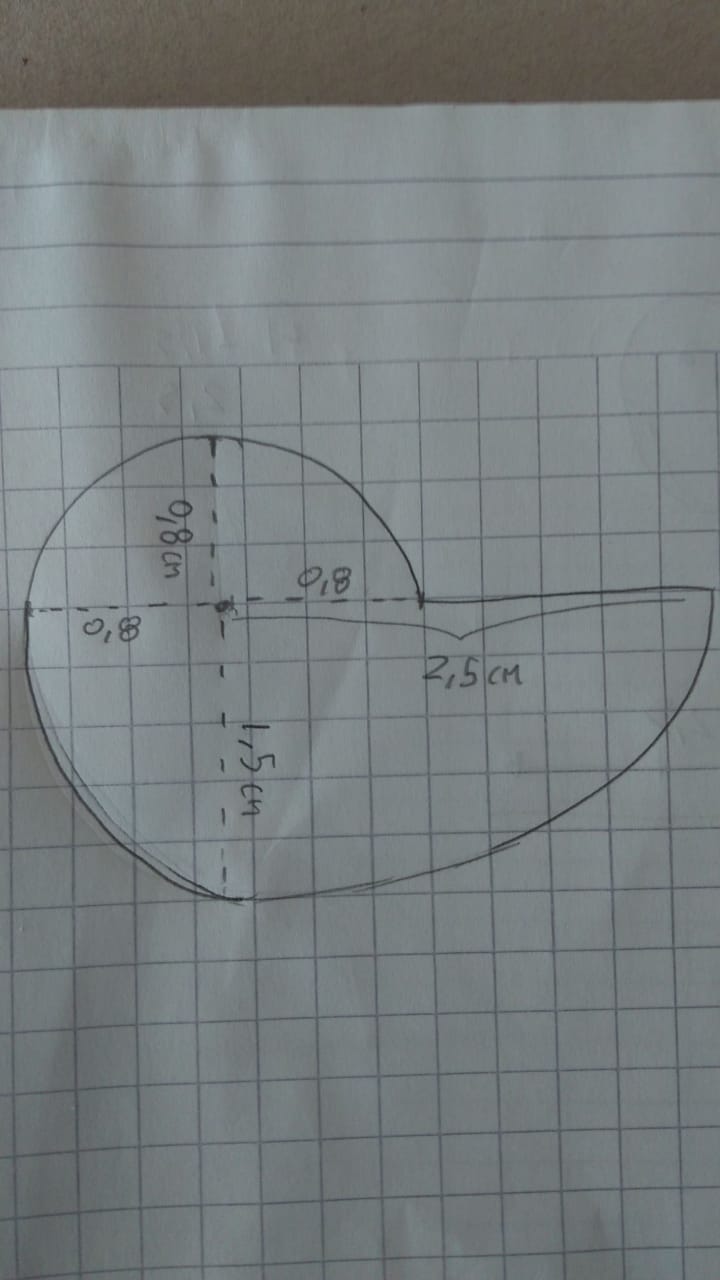 0,8 см
0,8
0,8
2,5 см
1,5 см